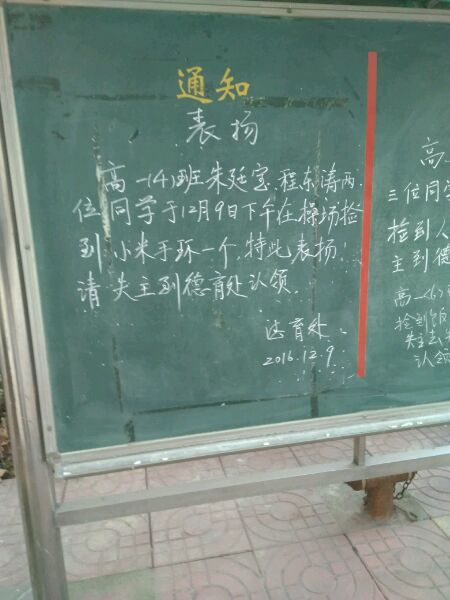 通知
表扬
高一(4)班朱廷宝、程东涛两
位同学于12月9日下午在操场捡
到小米手环一个,特此表扬!
请失主到德育处认领.
德育处
2016.12.9
高一
三位同学
捡到人
主到德
高一(6)
捡到饭
失主去
认领